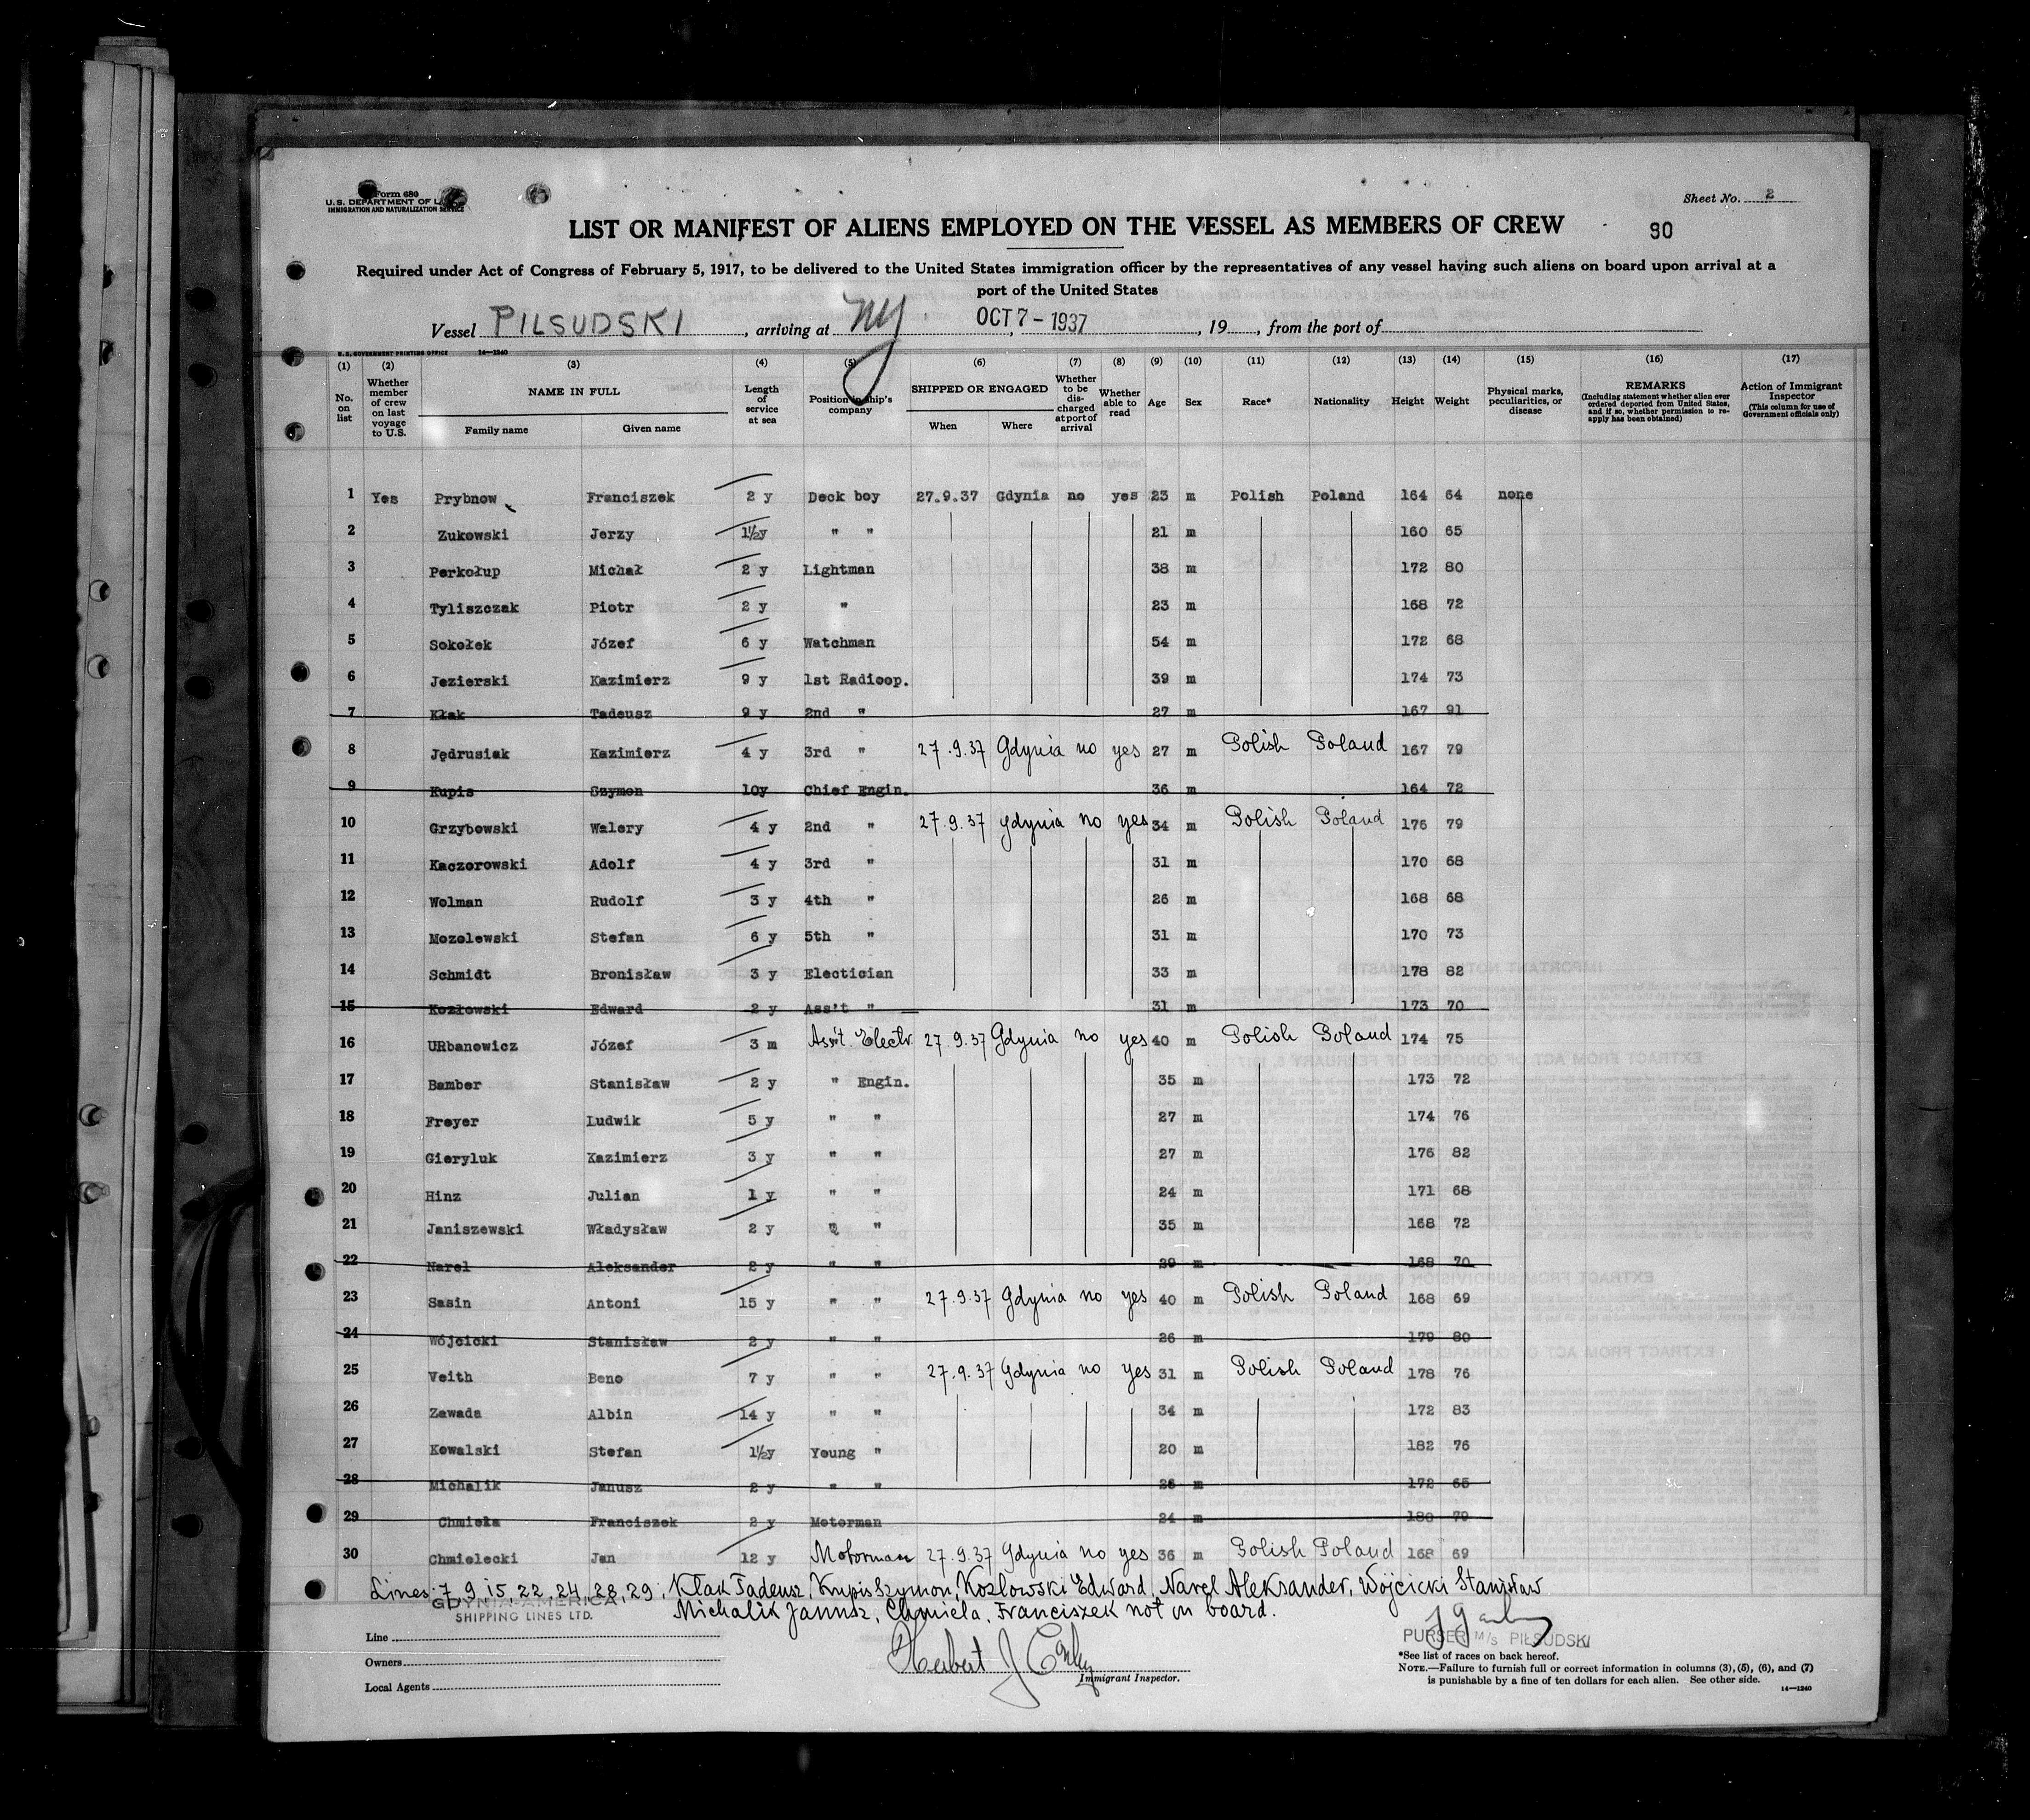 Form 680
U. S. DEPARTMENT OF
IMMIGRATION AND NATURALIZATION SERVICE
Sheet No. 2
LIST OR MANIFEST OF ALIENS EMPLOYED ON THE VESSEL AS MEMBERS OF CREW
90
Required under Act of Congress of February 5, 1917, to be delivered to the United States immigration officer by the representatives of any vessel having such aliens on board upon arrival at a
port of the United States
Vessel PILSUDSKI, arriving at NY OCT 7 - 1937, 19, from the port of
U. S. GOVERNMENT PRINTING OFFICE 14—1240
(1) (2) (3) (4) (5) (6) (7) (8) (9) (10) (11) (12) (13) (14) (15) (16) (17)
No. on list
Whether member of crew on last voyage to U.S.
NAME IN FULL
Family name Given name
Length of service at sea
Position in ship's company
SHIPPED OR ENGAGED
When Where
Whether to be discharged at port of arrival
Whether able to read
Age
Sex
Race*
Nationality
Height
Weight
Physical marks, peculiarities, or disease
REMARKS
(Including statement whether alien ever ordered deported from United States, and if so, whether permission to reapply has been obtained)
Action of Immigrant Inspector
(This column for use of Government officials only)
1 Yes Prybnow Franciszek 2 y Deck boy 27.9.37 Gdynia no yes 23 m Polish Poland 164 64 none
2 Zukowski Jerzy 1½y " " 21 m 160 65
3 Perkołup Michał 2 y Lightman 38 m 172 80
4 Tyliszczak Piotr 2 y " 23 m 168 72
5 Sokołek Józef 6 y Watchman 54 m 172 68
6 Jezierski Kazimierz 9 y 1st Radioop. 39 m 174 73
7 Kłak Tadeusz 9 y 2nd " 27 m 167 91
8 Jędrusiak Kazimierz 4 y 3rd " 27.9.37 Gdynia no yes 27 m Polish Poland 167 79
9 Kupis Szymon 10y Chief Engin. 36 m 164 72
10 Grzybowski Walery 4 y 2nd " 27.9.37 Gdynia no yes 34 m Polish Poland 176 79
11 Kaczorowski Adolf 4 y 3rd " 31 m 170 68
12 Wolman Rudolf 3 y 4th " 26 m 168 68
13 Mozolewski Stefan 6 y 5th " 31 m 170 73
14 Schmidt Bronisław 3 y Electician 33 m 178 82
15 Kozłowski Edward 2 y Ass't " 31 m 173 70
16 URbanowicz Józef 3 m Ass't Electr. 27.9.37 Gdynia no yes 40 m Polish Poland 174 75
17 Bamber Stanisław 2 y " Engin. 35 m 173 72
18 Freyer Ludwik 5 y " " 27 m 174 76
19 Gieryluk Kazimierz 3 y " " 27 m 176 82
20 Hinz Julian 1 y " " 24 m 171 68
21 Janiszewski Władysław 2 y " " 35 m 168 72
22 Narel Aleksander 2 y " " 29 m 168 70
23 Sasin Antoni 15 y " " 27.9.37 Gdynia no yes 40 m Polish Poland 168 69
24 Wójcicki Stanisław 2 y " " 26 m 179 80
25 Veith Beno 7 y " " 27.9.37 Gdynia no yes 31 m Polish Poland 178 76
26 Zawada Albin 14 y " " 34 m 172 83
27 Kowalski Stefan 1½y Young " 20 m 182 76
28 Michalik Janusz 2 y " " 26 m 172 65
29 Chmieła Franciszek 2 y Motorman 24 m 180 79
30 Chmielecki Jan 12 y Motorman 27.9.37 Gdynia no yes 36 m Polish Poland 168 69
Lines: 7, 9, 15, 22, 24, 28, 29; Kłak Tadeusz, Kupis Szymon, Kozlowski Edward, Narel Aleksander, Wójcicki Stanisław
Michalik Janusz, Chmiela, Franciszek not on board.
GDYNIA-AMERICA
SHIPPING LINES LTD.
Line
Owners
Local Agents
Herbert J
Immigrant Inspector.
PURSER M/S PIŁSUDSKI
*See list of races on back hereof.
NOTE.—Failure to furnish full or correct information in columns (3), (5), (6), and (7)
is punishable by a fine of ten dollars for each alien. See other side.
14—1240